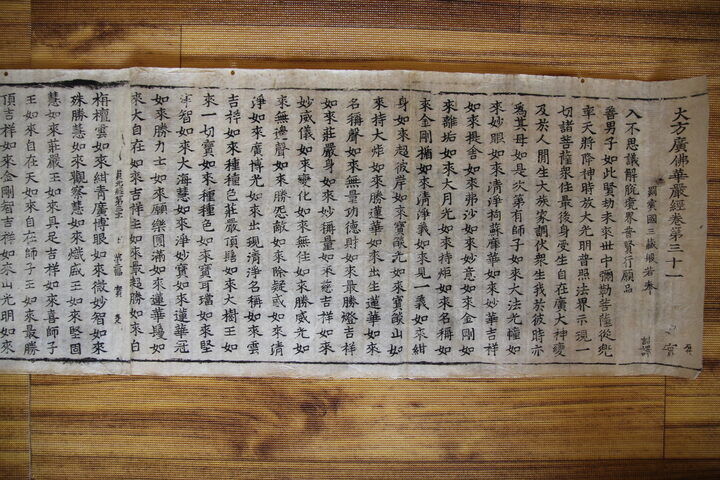 大方廣佛華嚴經卷第三十一
罽賓國三藏般若奉
詔譯
入不思議解脫境界普賢行願品
善男子如此賢劫未來世中彌勒菩薩從兜
率天將降神時放大光明普照法界示現一
切諸菩薩衆住最後身受生自在廣大神變
及於人閒生大族家調伏衆生我於彼時亦
爲其母如是次第有師子如來大法光幢如
來妙眼如來清淨拘蘇摩華如來妙華吉祥
如來提舍如來弗沙如來妙意如來金剛如
來離垢如來大月光如來持炬如來名稱如
來金剛楯如來清淨義如來見一義如來紺
身如來超彼岸如來寶燄光如來寶燄山如
來持大炬如來勝蓮華如來出生蓮華如來
名稱聲如來無量功德財如來最勝燈吉祥
如來莊嚴身如來妙稱量如來慈吉祥如來
妙威儀如來變化如來無住如來勝威光如
來無邊聲如來勝怨敵如來除疑惑如來清
淨如來廣博光如來出現清淨名稱如來雲
吉祥如來種種色莊嚴頂髻如來大樹王如
來一切寶如來種種色如來寶耳璫如來堅
智如來大海慧如來淨妙寶如來蓮華冠
如來勝力士如來願樂圓滿如來蓮華鬘如
來大自在如來吉祥王如來最超勝如來白
栴檀雲如來紺靑廣博眼如來微妙智如來
珠勝慧如來觀察慧如來熾威王如來堅固
慧如來莊嚴王如來具足吉祥如來喜師子
王如來自在天如來自在師子王如來最勝
頂吉祥如來金剛智吉祥如來山光明如來